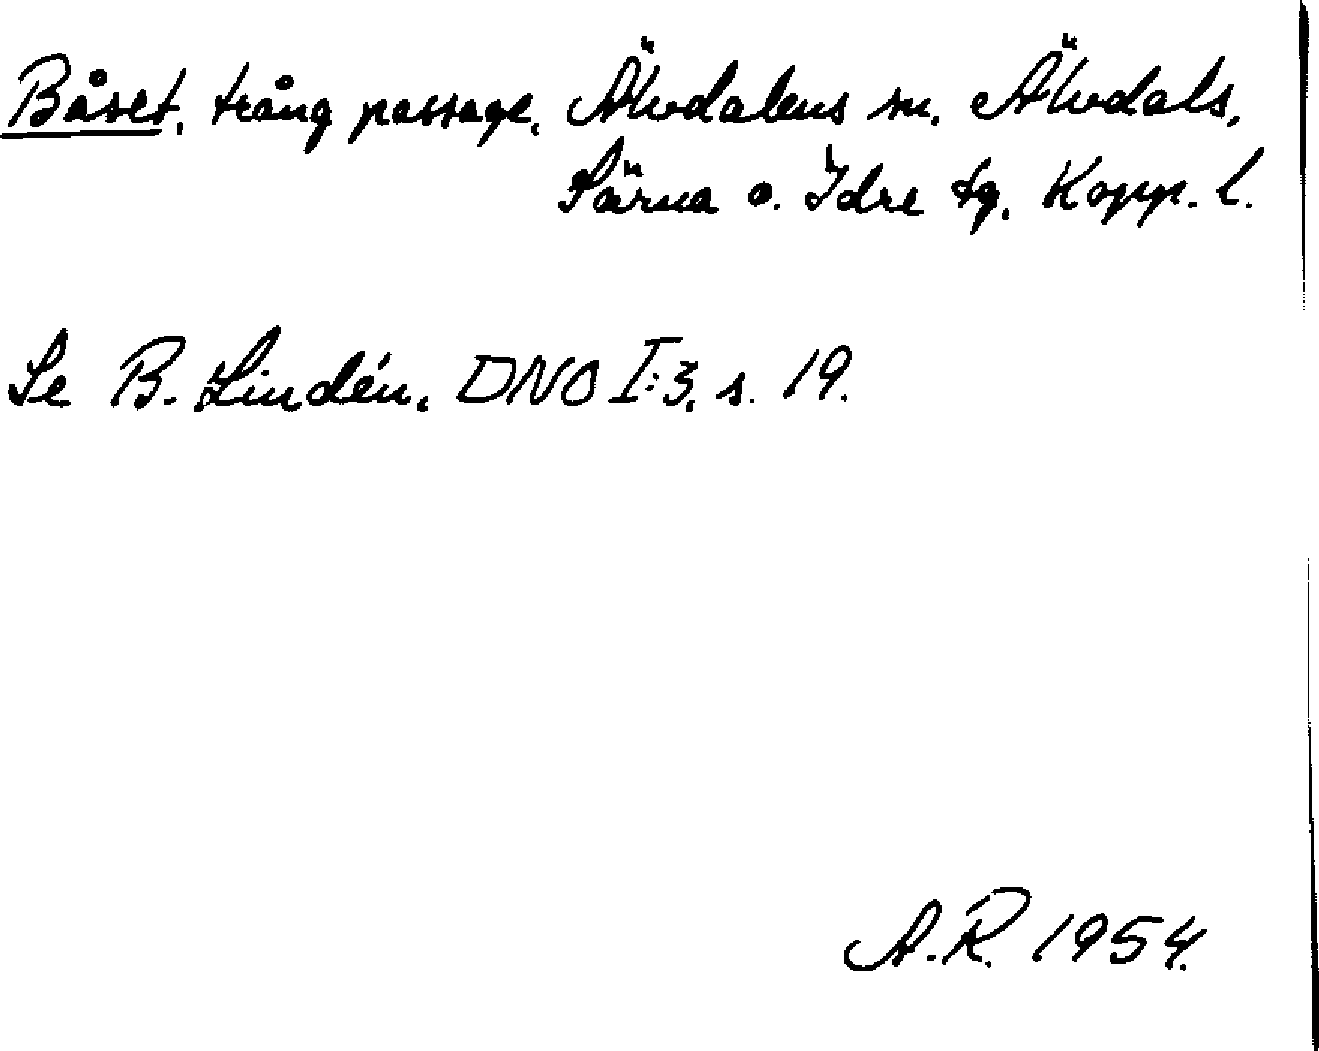 Båset, trång passage, Älvdalens sn, Älvdals,
Särna o. Idre tg, Kopp. l.
Se B. Lindén, DNO I:3, s. 19.
A.R. 1954.